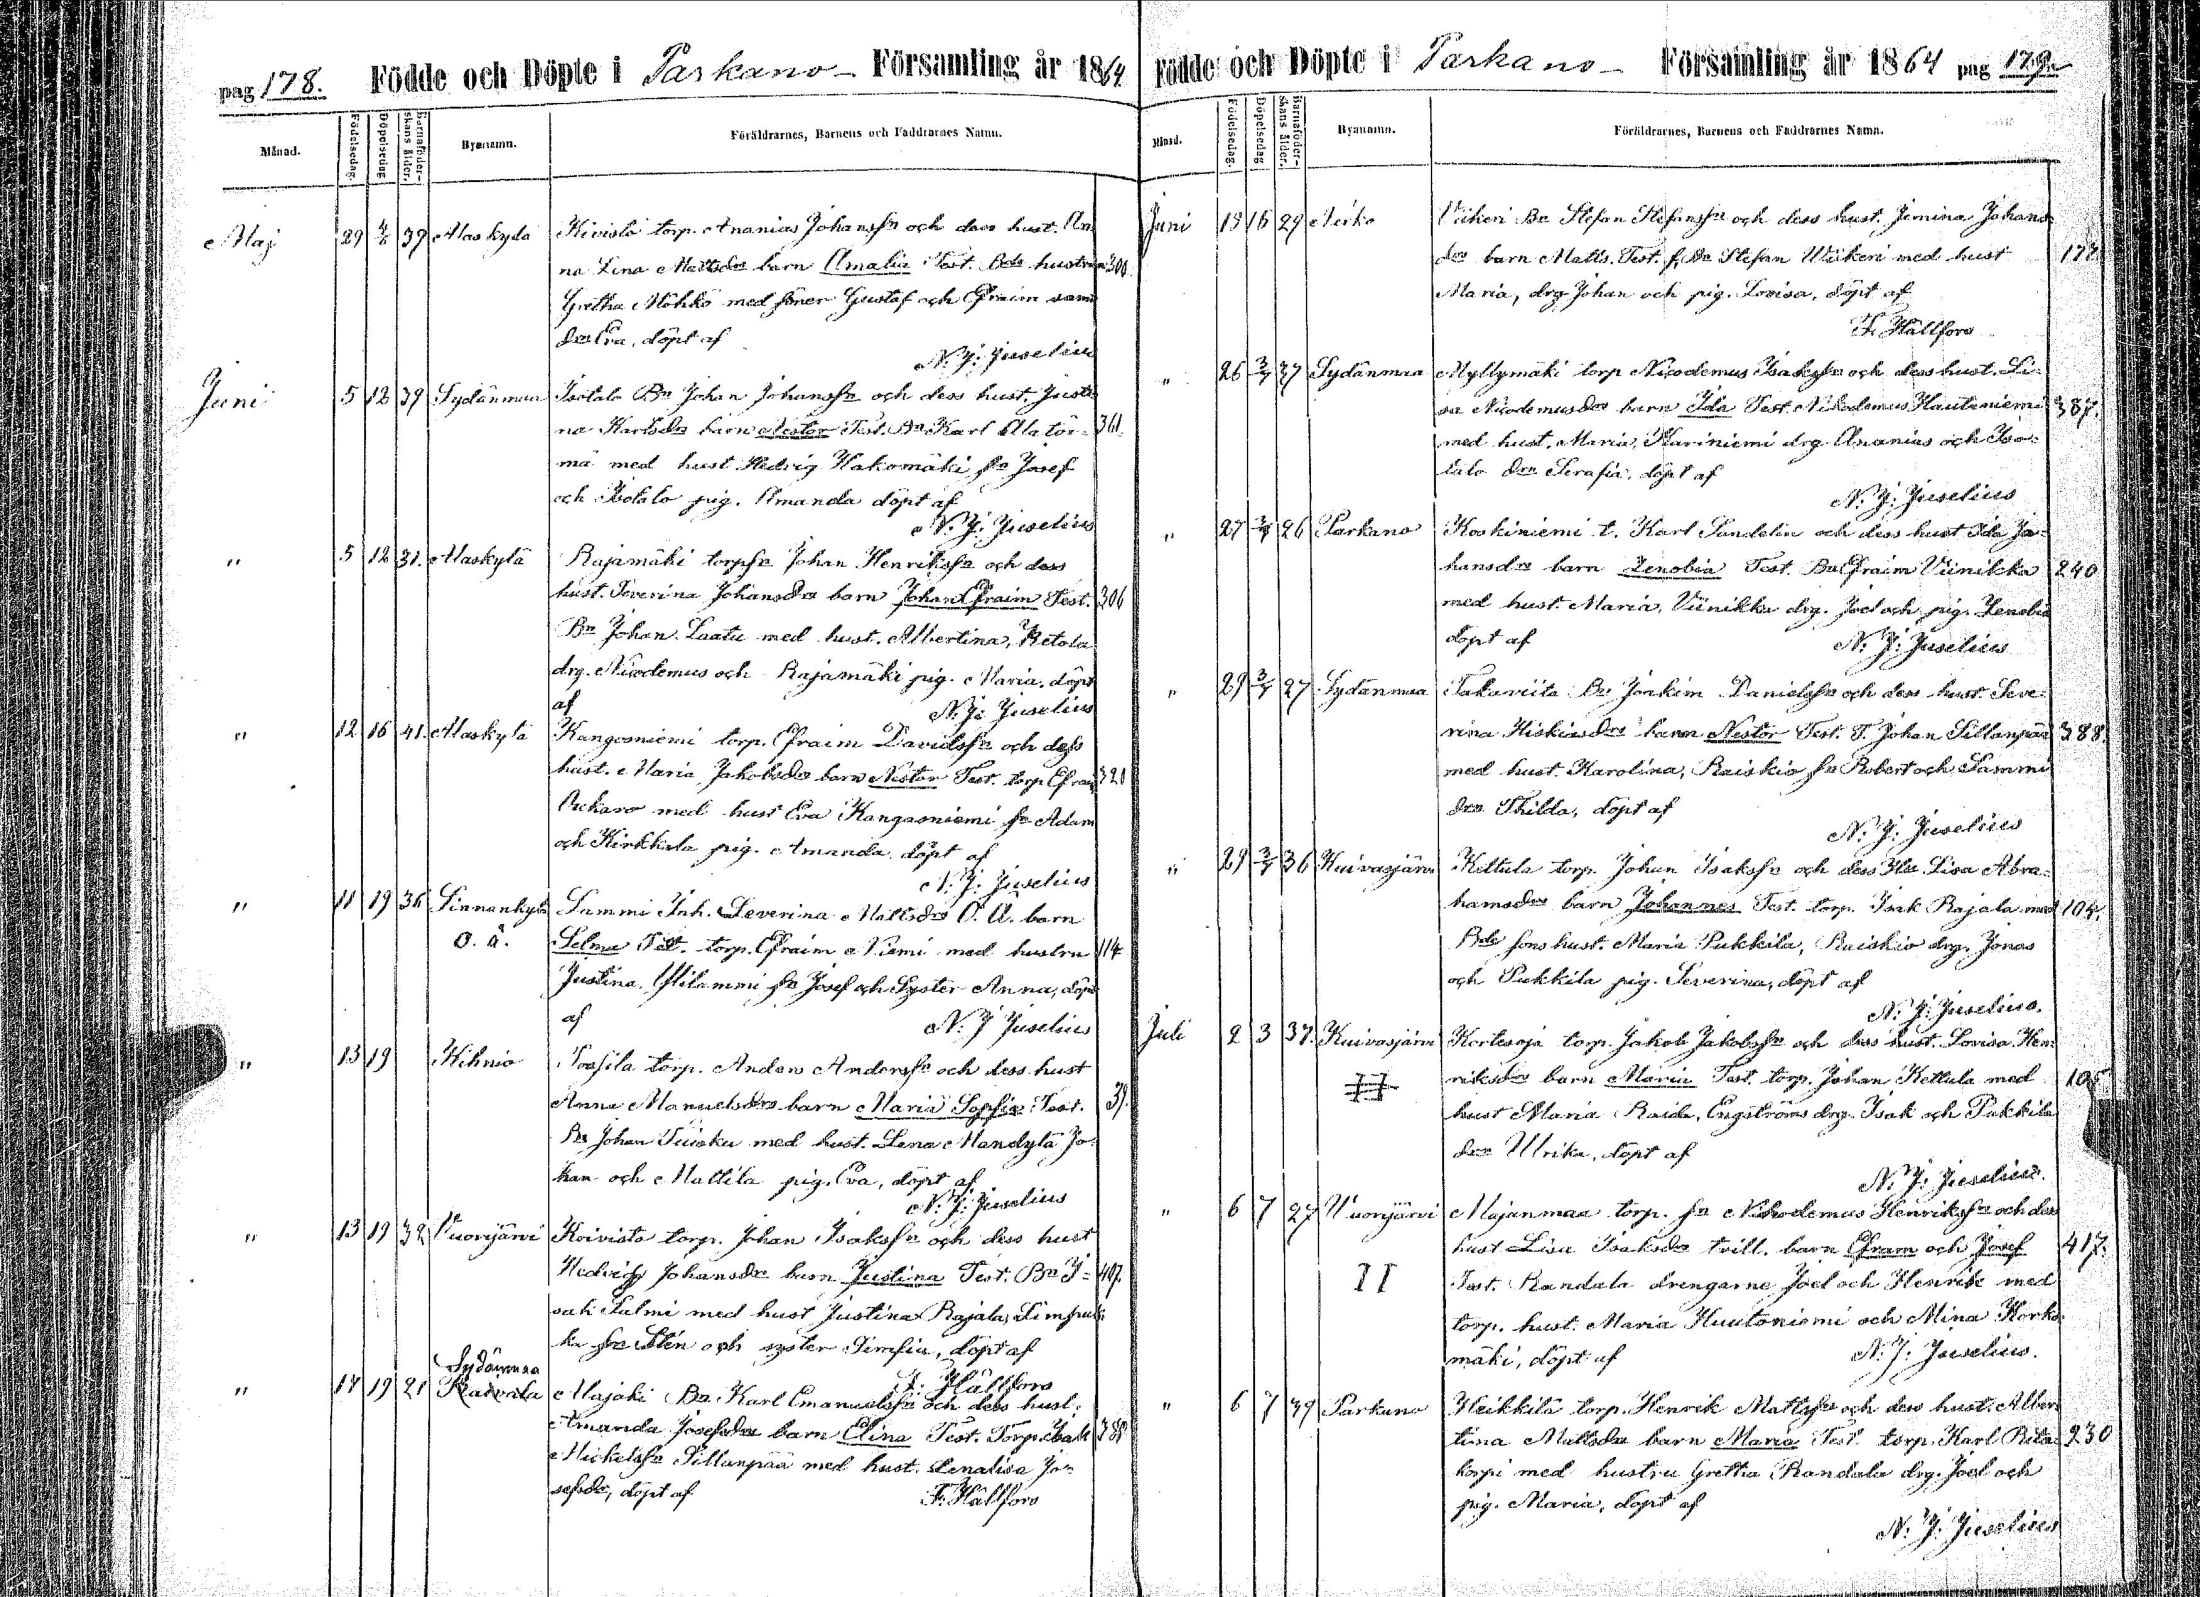 pag 178. Födde och Döpte i Parkano Församling år 1864
Månad. Födelsedag. Döpelsedag Barnaföder-skans ålder. Byanamn. Föräldrarnes, Barnens och Faddrarnes Namn.
Maj 29 4/6 39 Alaskylä Kivistö torp. Ananias Johansfn och dess hust. An
na Lina Mattsdr barn Amalia Test. Bds hustru 300
Gretha Möhkö med föner Gustaf och Efraim samt
drn Eva, döpt af
N. J: Juselius
Juni 5 12 39 Sydänmaa Isotalo Bn Johan Johansfn och dess hust. Justi
na Karlsdr barn Nestor Test. Bn Karl Alatör- 361.
mä med hust Hedvig Hakomäki fn Josef
och Isotalo pig. Amanda döpt af
N. J: Juselius
" 5 12 31. Alaskylä Rajamäki torpfn Johan Henriksfn och dess
hust. Severina Johansdr barn Johan Efraim Test. 306
Bn Johan Laatu med hust. Albertina, Ketola
drg. Nicodemus och Rajamäki pig. Maria, döpt
af N. J: Juselius
" 12 16 41. Alaskylä Kangasniemi torp. Efraim Davidsfn och dess
hust. Maria Jakobsdr barn Nestor Test. torp Efraim 321
med hust Eva Kangasniemi fn Adam
och Kirkkala pig. Amanda, döpt af
N. J: Juselius
" 11 19 36 Linnankylä Lammi Inh. Severina Mattsdr O. Ä. barn
O. ä. Selma Test. torp. Efraim Niemi med hustru 114
Justina, Ylilammi fn Josef och Syster Anna, döpt
af N. J Juselius
" 13 19 Kihniö torp. Anders Andersfn och dess hust
Anna Manuelsdr barn Maria Sofia Test. 39.
Bn Johan med hust. Lena Jo-
han och Mattila pig. Eva, döpt af
N. J: Juselius
" 13 19 32 Vuorijärvi Koivisto torp. Johan Isaksfn och dess hust
Hedvig Johansdr barn Justina Test. Bn I- 407.
sak Salmi med hust Justina Rajala,
fn Sten och syster döpt af
F. Hällfors
Sydänmaa
" 14 19 21 Majaki Bn. Karl Emanuelsfn och dess hust.
Amanda Josefsdr barn Elina Test. Torp. Isak 388
Mickelsfn Sillanpää med hust. Lenalisa Jo-
sefsdr, döpt af F. Hällfors
Födde och Döpte i Parkano Församling år 1864 pag 179.
Månad. Födelsedag. Döpelsedag Barnaföder-skans ålder. Byanamn. Föräldrarnes, Barnens och Faddrarnes Namn.
Juni 15 16 29 Viikeri Bn Stefan Stefansfn och dess hust. Jemina Johans
drs barn Matts. Test. f. Bn Stefan Wiikeri med hust 177
Maria, drg Johan och pig. Lovisa, döpt af
F. Hällfors
" 26 3/7 37 Sydänmaa Myllymäki torp Nicodemus Isaksfn och dess hust. Li-
sa Nicodemusdr barn Ida Test. Nikodemus Hautaniemi 387.
med hust. Maria, Kariniemi drg Ananias och Iso-
talo drn Serafia, döpt af
N. J: Juselius
" 27 3/7 26 Parkano Koskiniemi t. Karl Sandelin och dess hust Ida Jo-
hansdr barn Zenobia Test. Bn Efraim Viinikka 240
med hust. Maria, Viinikka drg. Joel och pig. Zenobia
döpt af N. J: Juselius
" 29 3/7 27 Sydänmaa Takaviita Bn Joakim Danielsfn och dess hust. Seve-
rina Hiskiasdr barn Nestor Test. T. Johan Sillanpää 388.
med hust. Karolina, Raiskio fn Robert och Sammi
drn Thilda, döpt af
N. J: Juselius
" 29 3/7 36 Kuivasjärvi Kettula torp Johan Isaksfn och dess Hu. Lisa Abra-
hamsdr barn Johannes Test. torp. Isak Rajala med 104.
Bds sons hust. Maria Pukkila, Raiskio drg. Jonas
och Pukkila pig. Severina, döpt af
N. J: Juselius.
Juli 2 3 37. Kuivasjärvi Kortesoja torp. Jakob Jakobsfn och dess hust. Lovisa Hen-
riksdr barn Maria Test. torp. Johan Kettula med 105
hust Maria Raida, Engströms drg. Isak och Pukkila
drn Ulrika, döpt af
N. J: Juselius.
" 6 7 27 Vuorijärvi Majanmaa torp. fn Nikodemus Henriksfn och dess
hust Lisa Isaksdr tvill. barn Efram och Josef 417.
II Test. Randala drengarne Joel och Henrik med
torp. hust. Maria Huutoniemi och Mina Korko-
mäki, döpt af N. J: Juselius.
" 6 7 39 Parkano Heikkilä torp. Henrik Mattsfn och dess hust. Alber
tina Mattsdr barn Maria Test. torp. Karl Rita- 230
korpi med hustru Gretha Randala drg. Joel och
pig. Maria, döpt af
N. J: Juselius